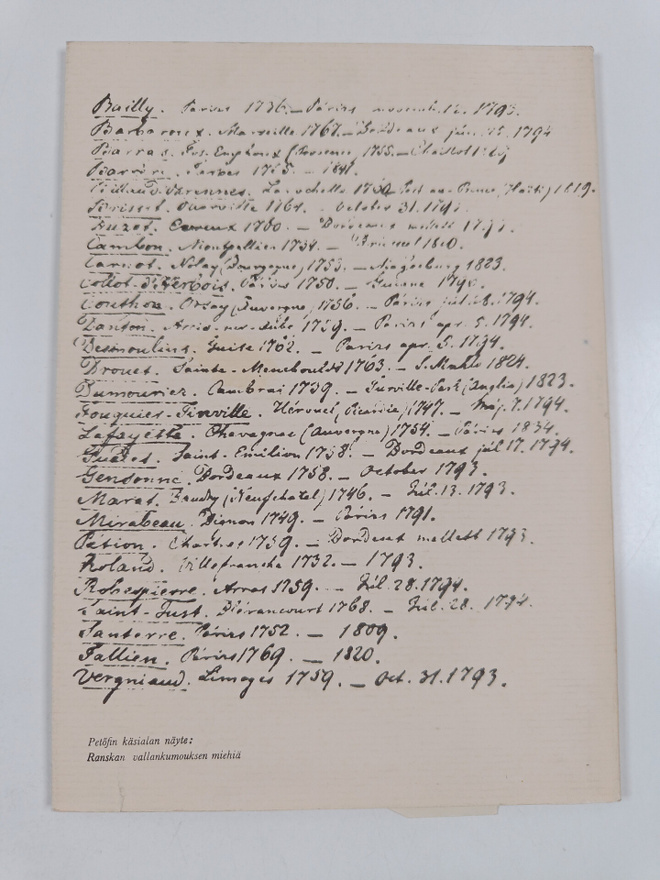 Bailly. Párizs 1736. – Párizs novemb. 12. 1793.
Barbaroux. Marseille 1767. – Bordeaux jún. 1794
Barras. Fos-Emphoux (Provence) 1755. –
Barère. Tarbes 1755 – 1841.
Billaud-Varennes. La rochelle Port au-Prince (Haiti) 1819.
Brissot. Ouarville 1754. – October 31. 1793.
Buzot. Evreux 1760. – Bordeaux mellett 1793.
Cambon. Montpellier 1754. –
Carnot. Nolay (Bourgogne) 1753. – Magdeburg 1823.
Collot-d'Herbois. Párizs 1750. – Guiana 1796.
Couthon. Orsay (Auvergne) 1756. – Párizs júl. 28. 1794.
Danton. Arcis-sur-Aube 1759. – Párizs apr. 5. 1794.
Desmoulins. Guise 1762. – Párizs apr. 5. 1794.
Drouet. Sainte-Menehould 1763. – 1824.
Dumouriez. Cambrai 1739. – Turville-Park (Anglia) 1823.
Fouquier-Tinville. Hérouel, (Picardia) 1747. – Máj. 7. 1794.
Lafayette. Chavagnac (Auvergne) 1757. – Párizs 1834.
Guadet. Saint-Emilion 1758. – Bordeaux júl 17. 1794.
Gensonné. Bordeaux 1758. – October 1793.
Marat. Baudry (Neufchatel) 1746. – Júl. 13. 1793.
Mirabeau. Bignon 1749. – Párizs 1791.
Pétion. Chartres 1759. – Bordeaux mellett 1793.
Roland. Villefranche 1732. – 1793.
Robespierre. Arras 1759. – Júl. 28. 1794.
Saint-Just. Blérancourt 1768. – Júl. 28. 1794.
Santerre. Párizs 1752. – 1809.
Tallien. Párizs 1769. – 1820.
Vergniaud. Limoges 1759. – Oct. 31. 1793.
Petőfin käsialan näyte:
Ranskan vallankumouksen miehiä